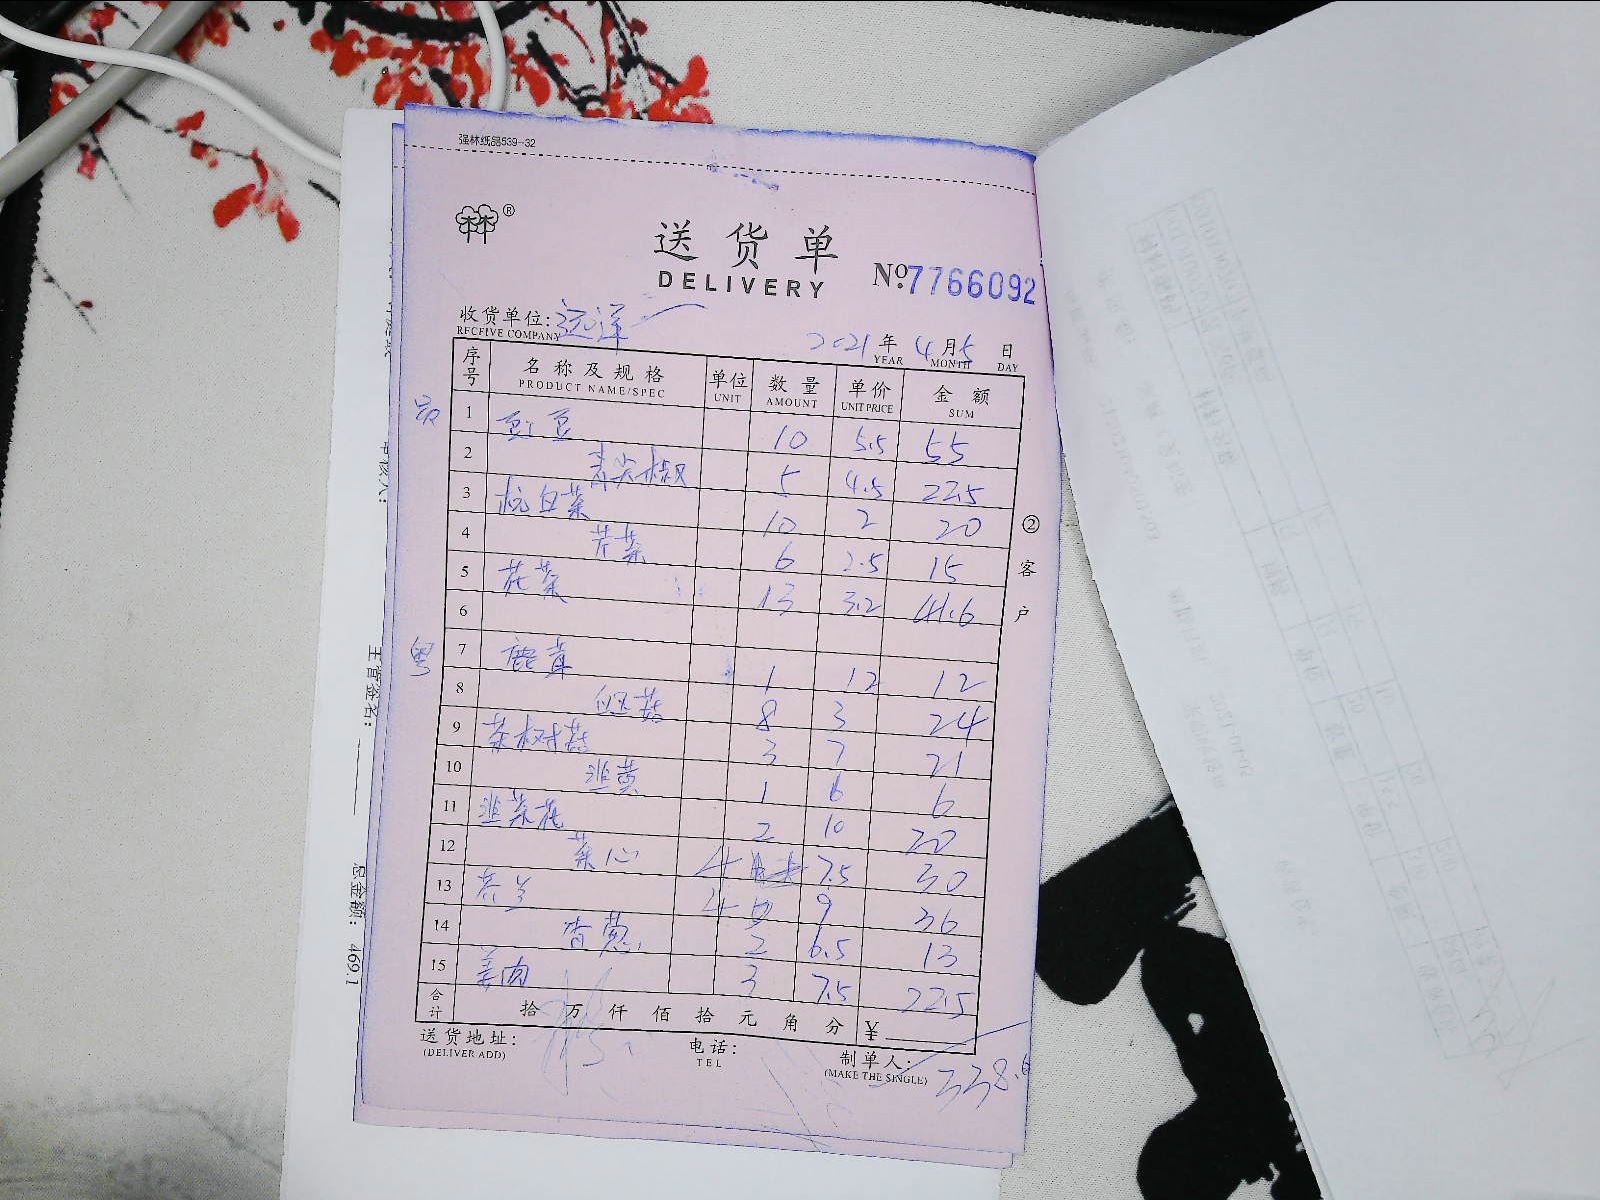 强林纸品539-32
林 ®
送货单
DELIVERY
№:7766092
收货单位: 远洋
RECEIVE COMPANY
2021 年 4 月 5 日
YEAR MONTH DAY
序号 名称及规格 单位 数量 单价 金额
PRODUCT NAME/SPEC UNIT AMOUNT UNIT PRICE SUM
1 豇豆 10 5.5 55
2 青尖椒 5 4.5 22.5
3 杭白菜 10 2 20
4 芹菜 6 2.5 15
5 花菜 13 3.2 41.6
6
粤
7 鹿茸 1 12 12
8 菇 8 3 24
9 茶树菇 3 7 21
10 韭黄 1 6 6
11 韭菜花 2 10 20
12 菜心 4 7.5 30
13 芥兰 4 9 36
14 香葱 2 6.5 13
15 姜肉 3 7.5 22.5
合计 拾 万 仟 佰 拾 元 角 分 ¥
338.6
送货地址: 电话: 制单人:
(DELIVER ADD) TEL (MAKE THE SINGLE)
② 客户
审核人:
主管签名:
总金额: 469.1